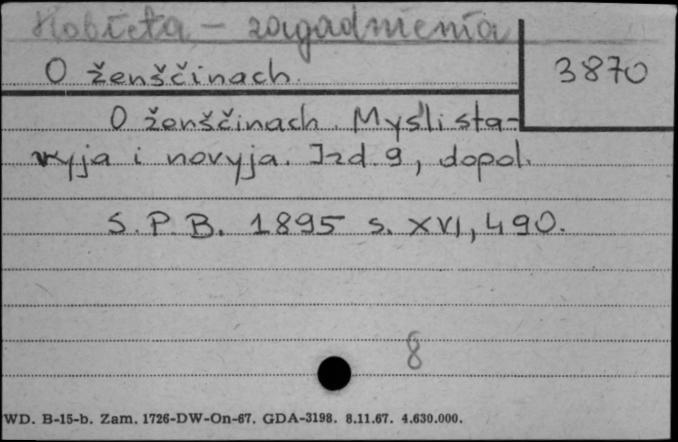 Kobieta - zagadnienia
O ženščinach.
3870
O ženščinach. Mysli sta-
ryja i novyja. Izd. 9, dopol.
S.P.B. 1895 s. XVI, 490.
8
WD. B-15-b. Zam. 1726-DW-On-67. GDA-3198. 8.11.67. 4.630.000.